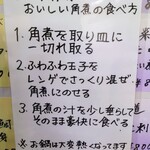 おいしい角煮の食べ方
1. 角煮を取り皿に
一切れ取る
2. ふわふわ玉子を
レンゲでさっくり混ぜ
角煮にのせる
3. 角煮の汁を少し垂らして
そのまま豪快に食べる
※お鍋は大変熱くなってます